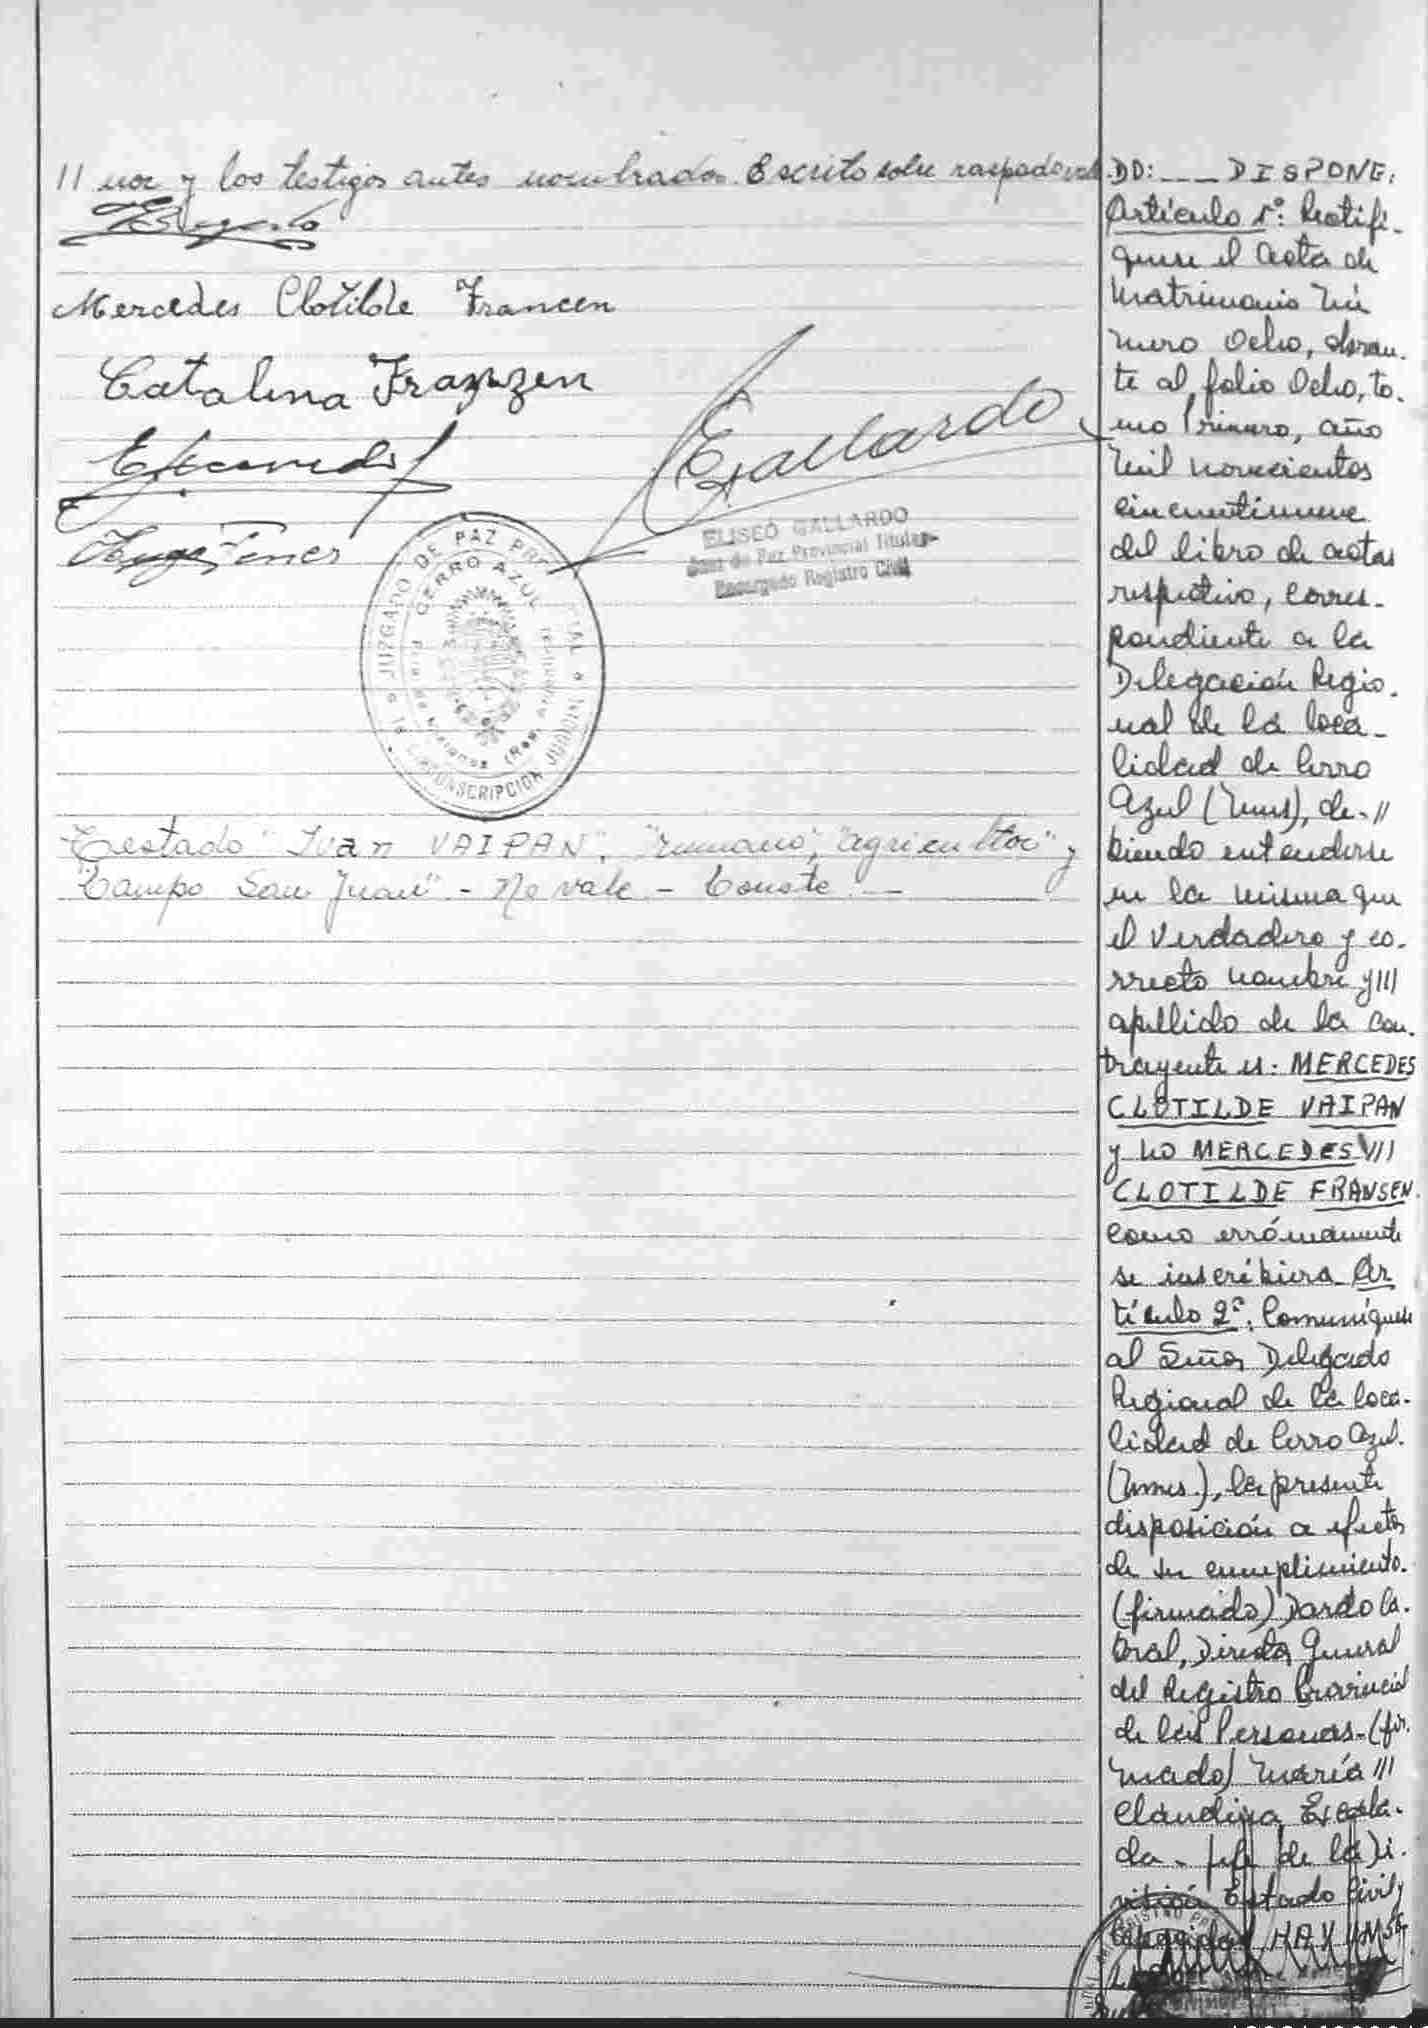 // nor y los testigos antes nombrados. Escrito sobre raspado vale.
Mercedes Clotilde Francen
Catalina Franzen
EGallardo
ELISEO GALLARDO
Juez de Paz Provincial Titular
Encargado Registro Civil
JUZGADO DE PAZ PROVINCIAL
CERRO AZUL
1a CIRCUNSCRIPCION JUDICIAL
Testado "Ivan VAIPAN", "rumano", "agricultor" y
"Campo San Juan" - No vale - Conste. —
DO: ___ DISPONE:
Artículo 1º: Rectifí-
quese el acta de
matrimonio nú
mero Ocho, obran-
te al folio Ocho, to-
mo Primero, año
mil novecientos
cincuentinueve
del libro de actas
respectivo, corres-
pondiente a la
Delegación Regio-
nal de la loca-
lidad de Cerro
Azul (Mnes), de-//
biendo entenderse
en la misma que
el verdadero y co-
rrecto nombre y///
apellido de la con-
trayente es: MERCEDES
CLOTILDE VAIPAN
y no MERCEDES ///
CLOTILDE FRANSEN
como erróneamente
se inscribiera Ar
tículo 2º: Comuníquese
al Señor Delegado
Regional de la loca-
lidad de Cerro Azul
(Mnes.), la presente
disposición a efectos
de su cumplimiento.
(firmado) Dardo Ca-
bral, Director General
del Registro Provincial
de las Personas-(fir-
mado) María ///
Claudina Escala-
da - Jefe de la Di-
visión Estado Civil y
Capacidad